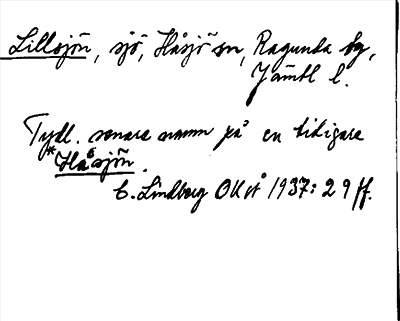 Lillsjön, sjö, Håsjö sn, Ragunda tg,
Jämtl l.
Tydl. senare namn på en tidigare
*Håsjön.
C. Lindberg OKvå 1937: 29 ff.